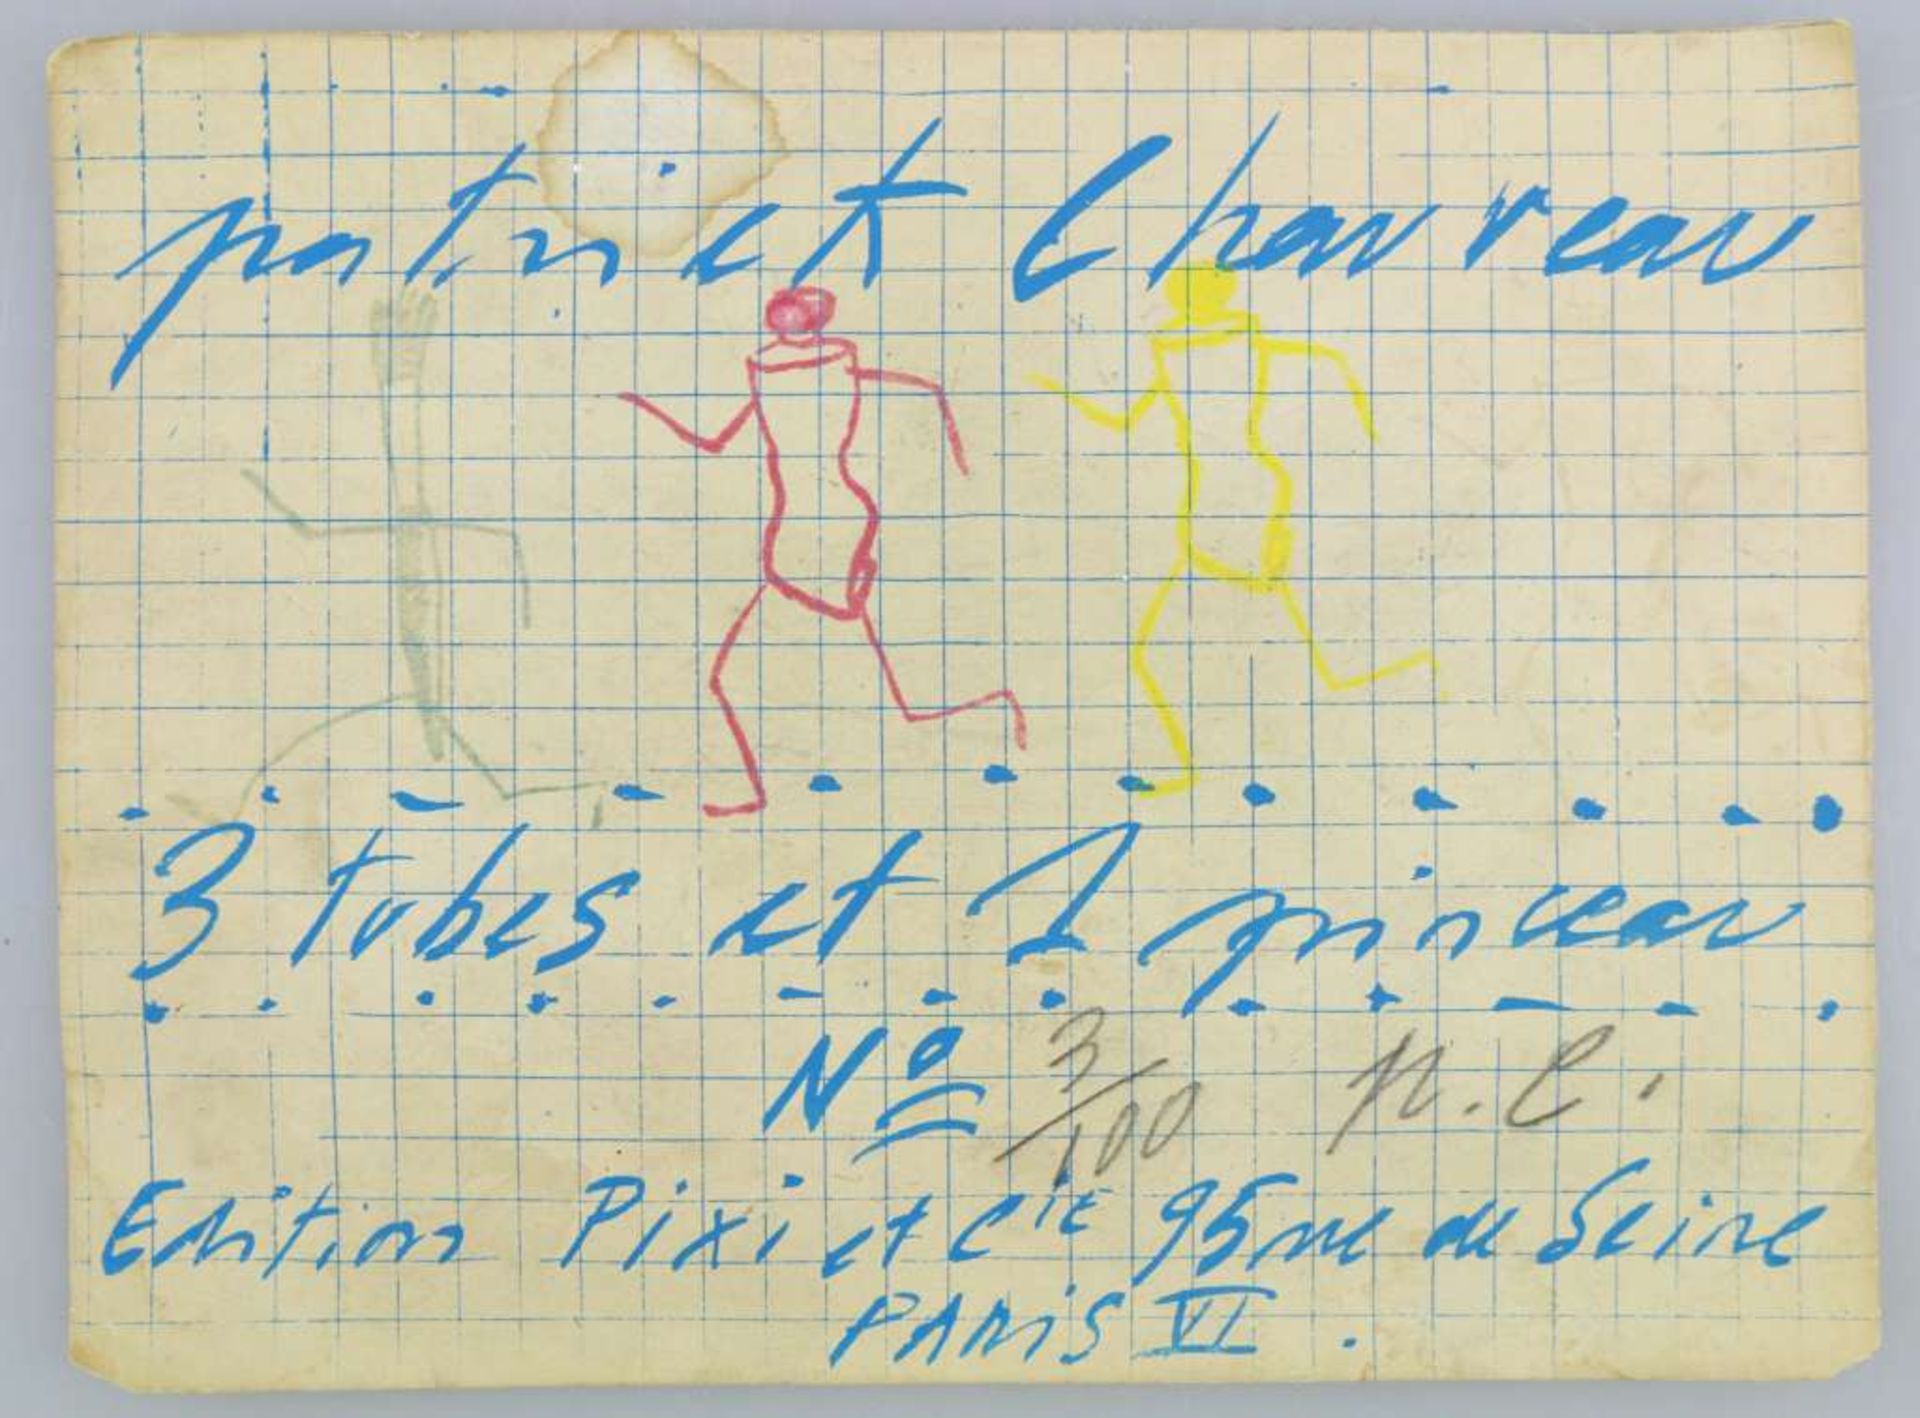 patrick Chauveau
3 tubes et 1 pinceau
Nº 3/100 P.C.
Edition Pixi et Cie 95 rue de Seine
PARIS VI.